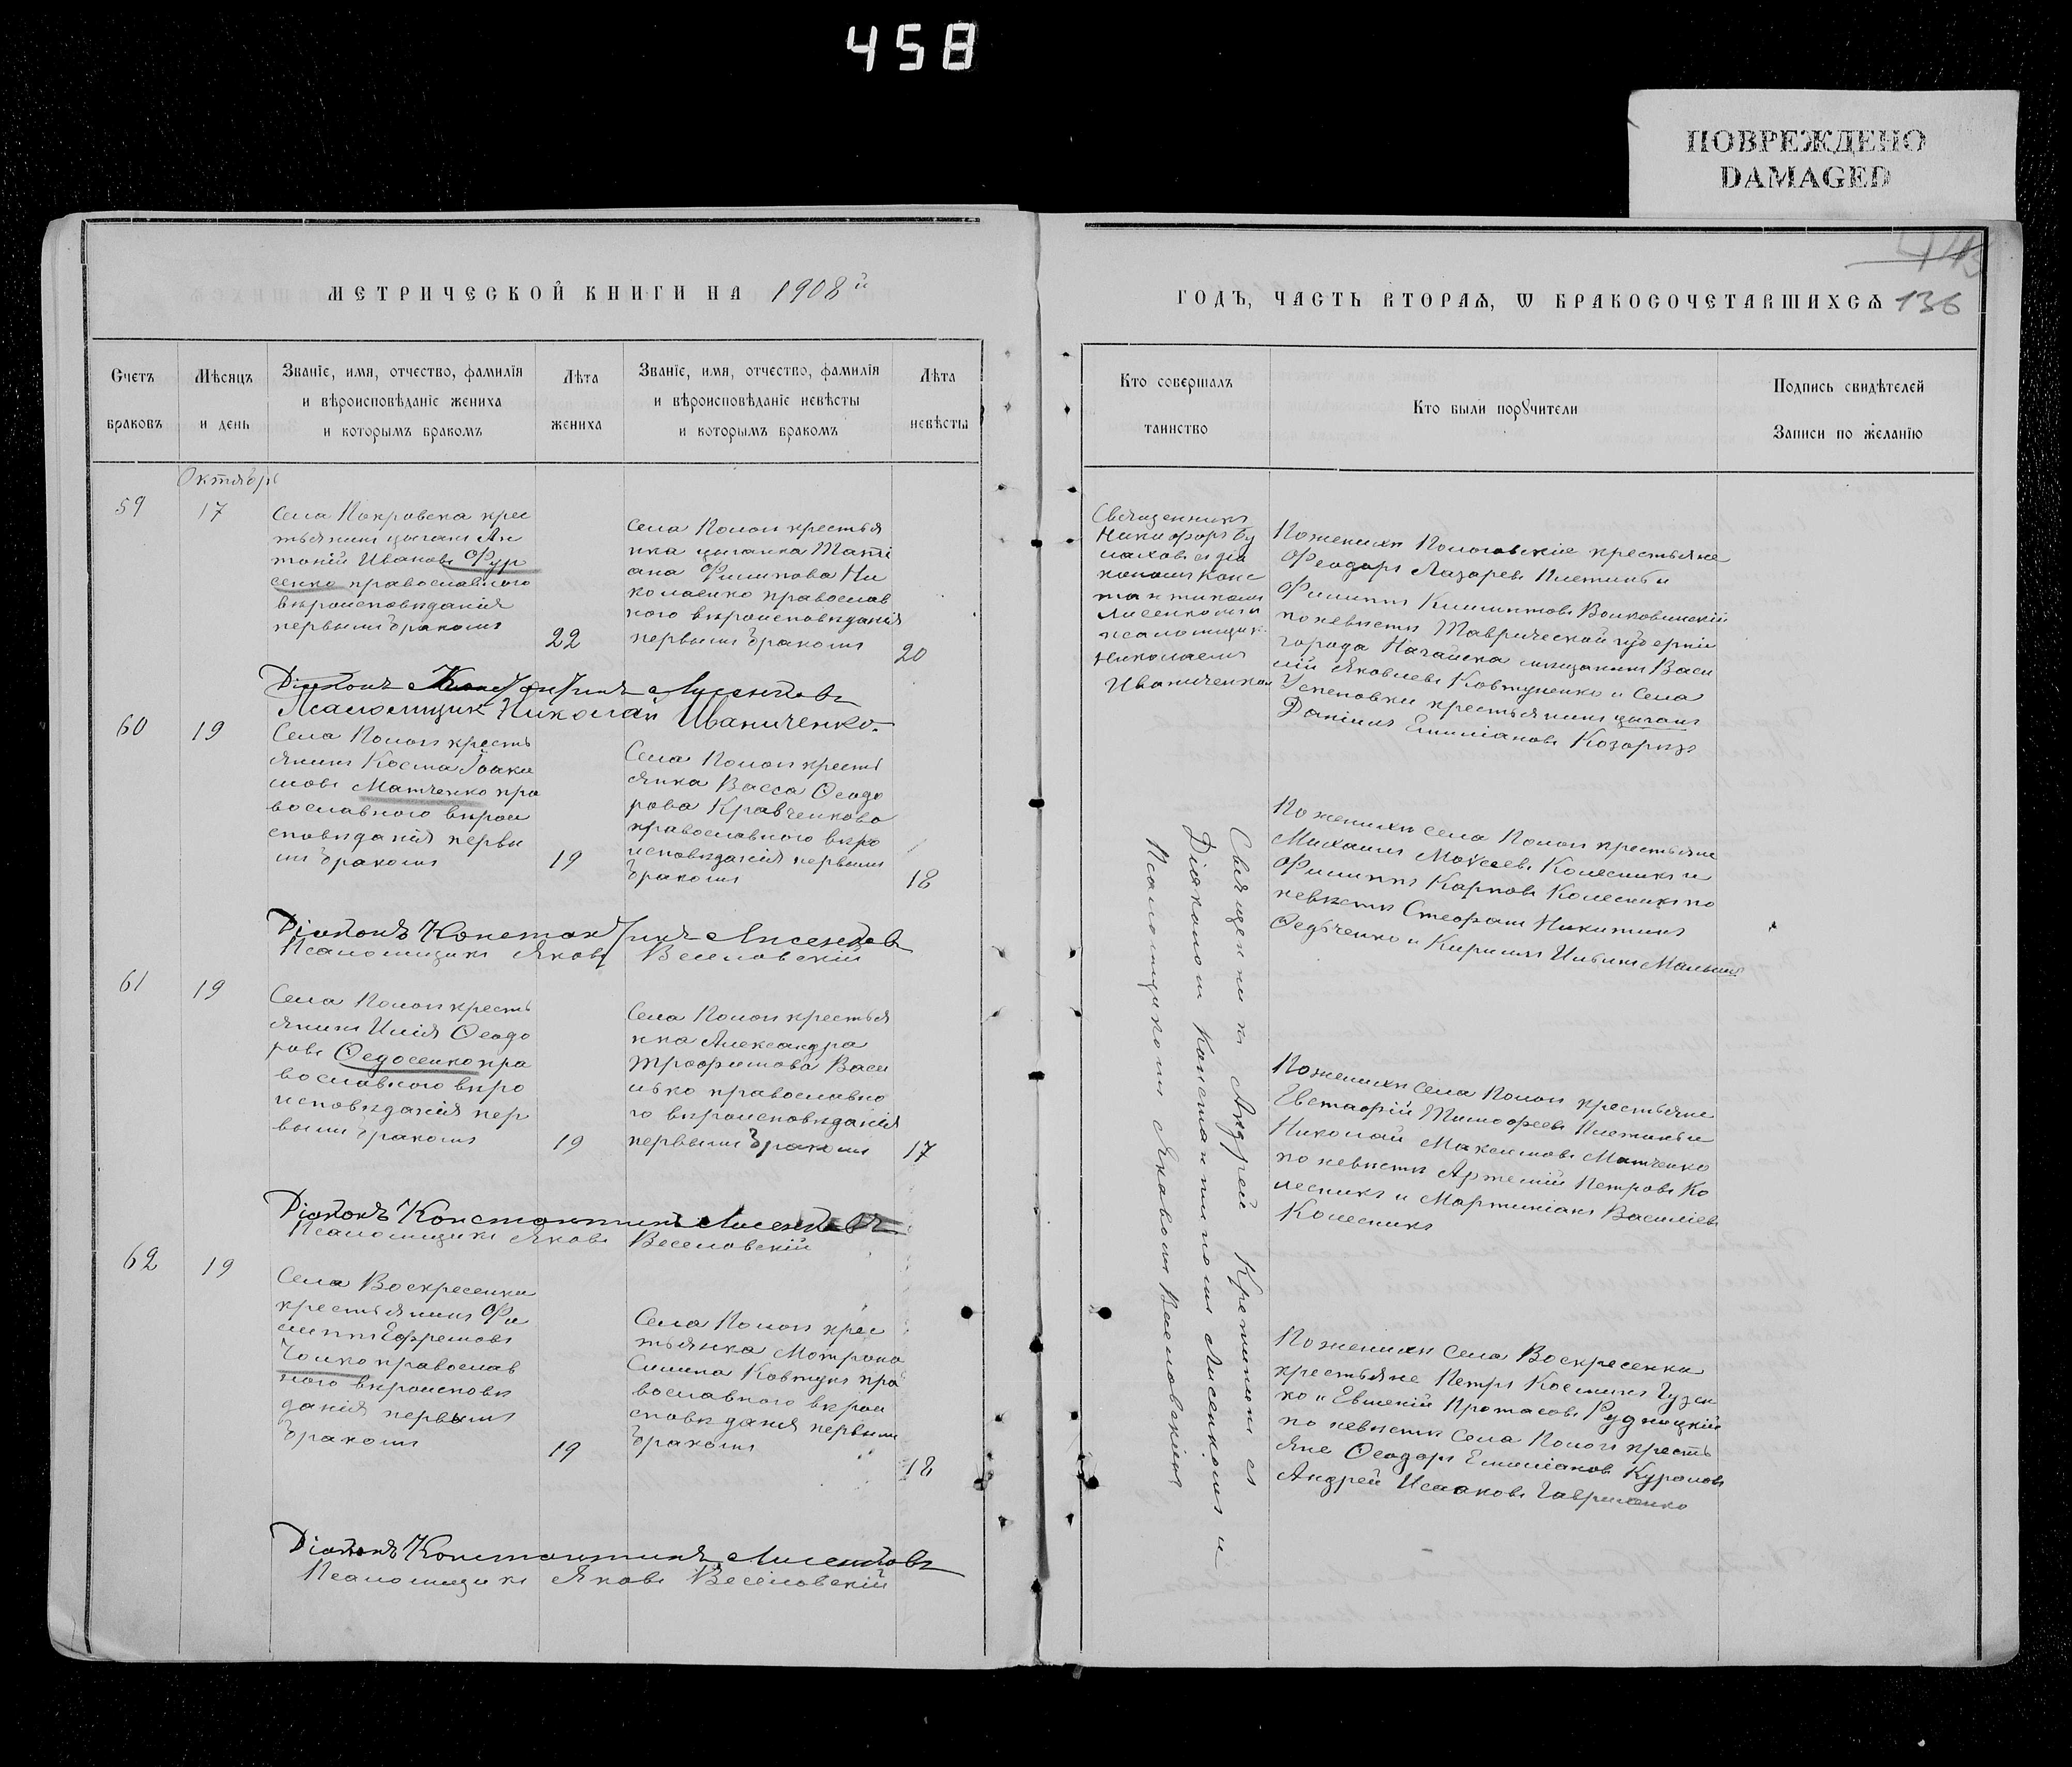 458
ПОВРЕЖДЕНО
DAMAGED
МЕТРИЧЕСКОЙ КНИГИ НА 1908й
Счетъ
браковъ
Мѣсяцъ
и день
Званіе, имя, отчество, фамилія
и вѣроисповѣданіе жениха
и которымъ бракомъ
Лѣта
жениха
Званіе, имя, отчество, фамилія
и вѣроисповѣданіе невѣсты
и которымъ бракомъ
Лѣта
невѣсты
Октябрь
59
17
Села Покровска крес
тьянинъ цыганъ Ан
тоній Ивановъ Фур
сенко православного
вѣроисповѣданія
первымъ бракомъ
22
Села Пологъ крестья
нка цыганка Тати
ана Филипова Ни
колаенко православ
ного вѣроисповѣданія
первымъ бракомъ
20
Діаконъ Константинъ Лисенковъ
Псаломщик Николай Иваниченко
60
19
Села Пологъ кресть
янинъ Косма Іоаки
мовъ Матченко пра
вославного вѣрои
сповѣданія первы
мъ бракомъ
19
Села Пологъ кресть
янка Васса Ѳеодо
рова Кравченкова
православного вѣро
исповѣданія первымъ
бракомъ
18
Діаконъ Константинъ Лисенковъ
Псаломщикъ Яковъ Веселовскій
61
19
Села Пологъ кресть
янинъ Илія Ѳеодо
ровъ Ѳедосенко пра
вославного вѣро
исповѣданія пер
вымъ бракомъ
19
Села Пологъ крестья
нка Александра
Трофимова Васи
лько православно
го вѣроисповѣданія
первымъ бракомъ
17
Діаконъ Константинъ Лисенковъ
Псаломщикъ Яковъ Веселовскій
62
19
Села Воскресенки
крестьянинъ Фи
липпъ Ефремовъ
Чолко православ
ного вѣроисповѣ
данія первымъ
бракомъ
19
Села Пологъ крес
тьянка Матрона
Симина Ковтунъ пра
вославного вѣрои
сповѣданія первымъ
бракомъ
18
Діаконъ Константинъ Лисенковъ
Псаломщикъ Яковъ Веселовскій
ГОДЪ, ЧАСТЬ ВТОРАѦ, Ѡ БРАКОСОЧЕТАВШИХСѦ 136
Кто совершалъ
таинство
Кто были порꙋчители
Подпись свидѣтелей
Записи по желанію
Священникъ
Никифоръ Бу
лаховъ съ діа
кономъ Конс
тантиномъ
Лисенкомъ и
псаломщик.
Николаемъ
Иваниченком
По женихѣ Пологовскіе крестьяне
Феодоръ Лазаревъ Плетинь и
Филиппъ Климентовъ Волковинскій
по невѣстѣ Таврической губерніи
города Ногайска мѣщанинъ Васи
лій Яковлевъ Ковтуненко и Села
Успеновки крестьянинъ цыганъ
Даніилъ Емиліановъ Козорызъ
Священникъ Андрей Кротковъ съ
Діакономъ Константиномъ Лисенкомъ и
Псаломщикомъ Яковомъ Веселовскимъ
По женихѣ села Пологъ крестьяне
Михаилъ Моѵсеевъ Колесникъ и
Филиппъ Карповъ Колесникъ по
невѣстѣ Стефанъ Никитинъ
Ѳедьченко и Кириллъ Ильинъ
По женихѣ села Пологъ крестьяне
Евстафій Тимофеевъ Плетинь и
Николай Максимовъ Матченко
по невѣстѣ Артемій Петровъ Ко
лесникъ и Мартиніанъ Василіевъ
Колесникъ
По женихѣ Села Воскресенки
крестьяне Петръ Косминъ Гузен
ко и Евмений Протасовъ Рудницкій
по невѣстѣ Села Пологъ кресть
яне Ѳеодоръ Емиліановъ
Андрей Исааковъ Гавриленко